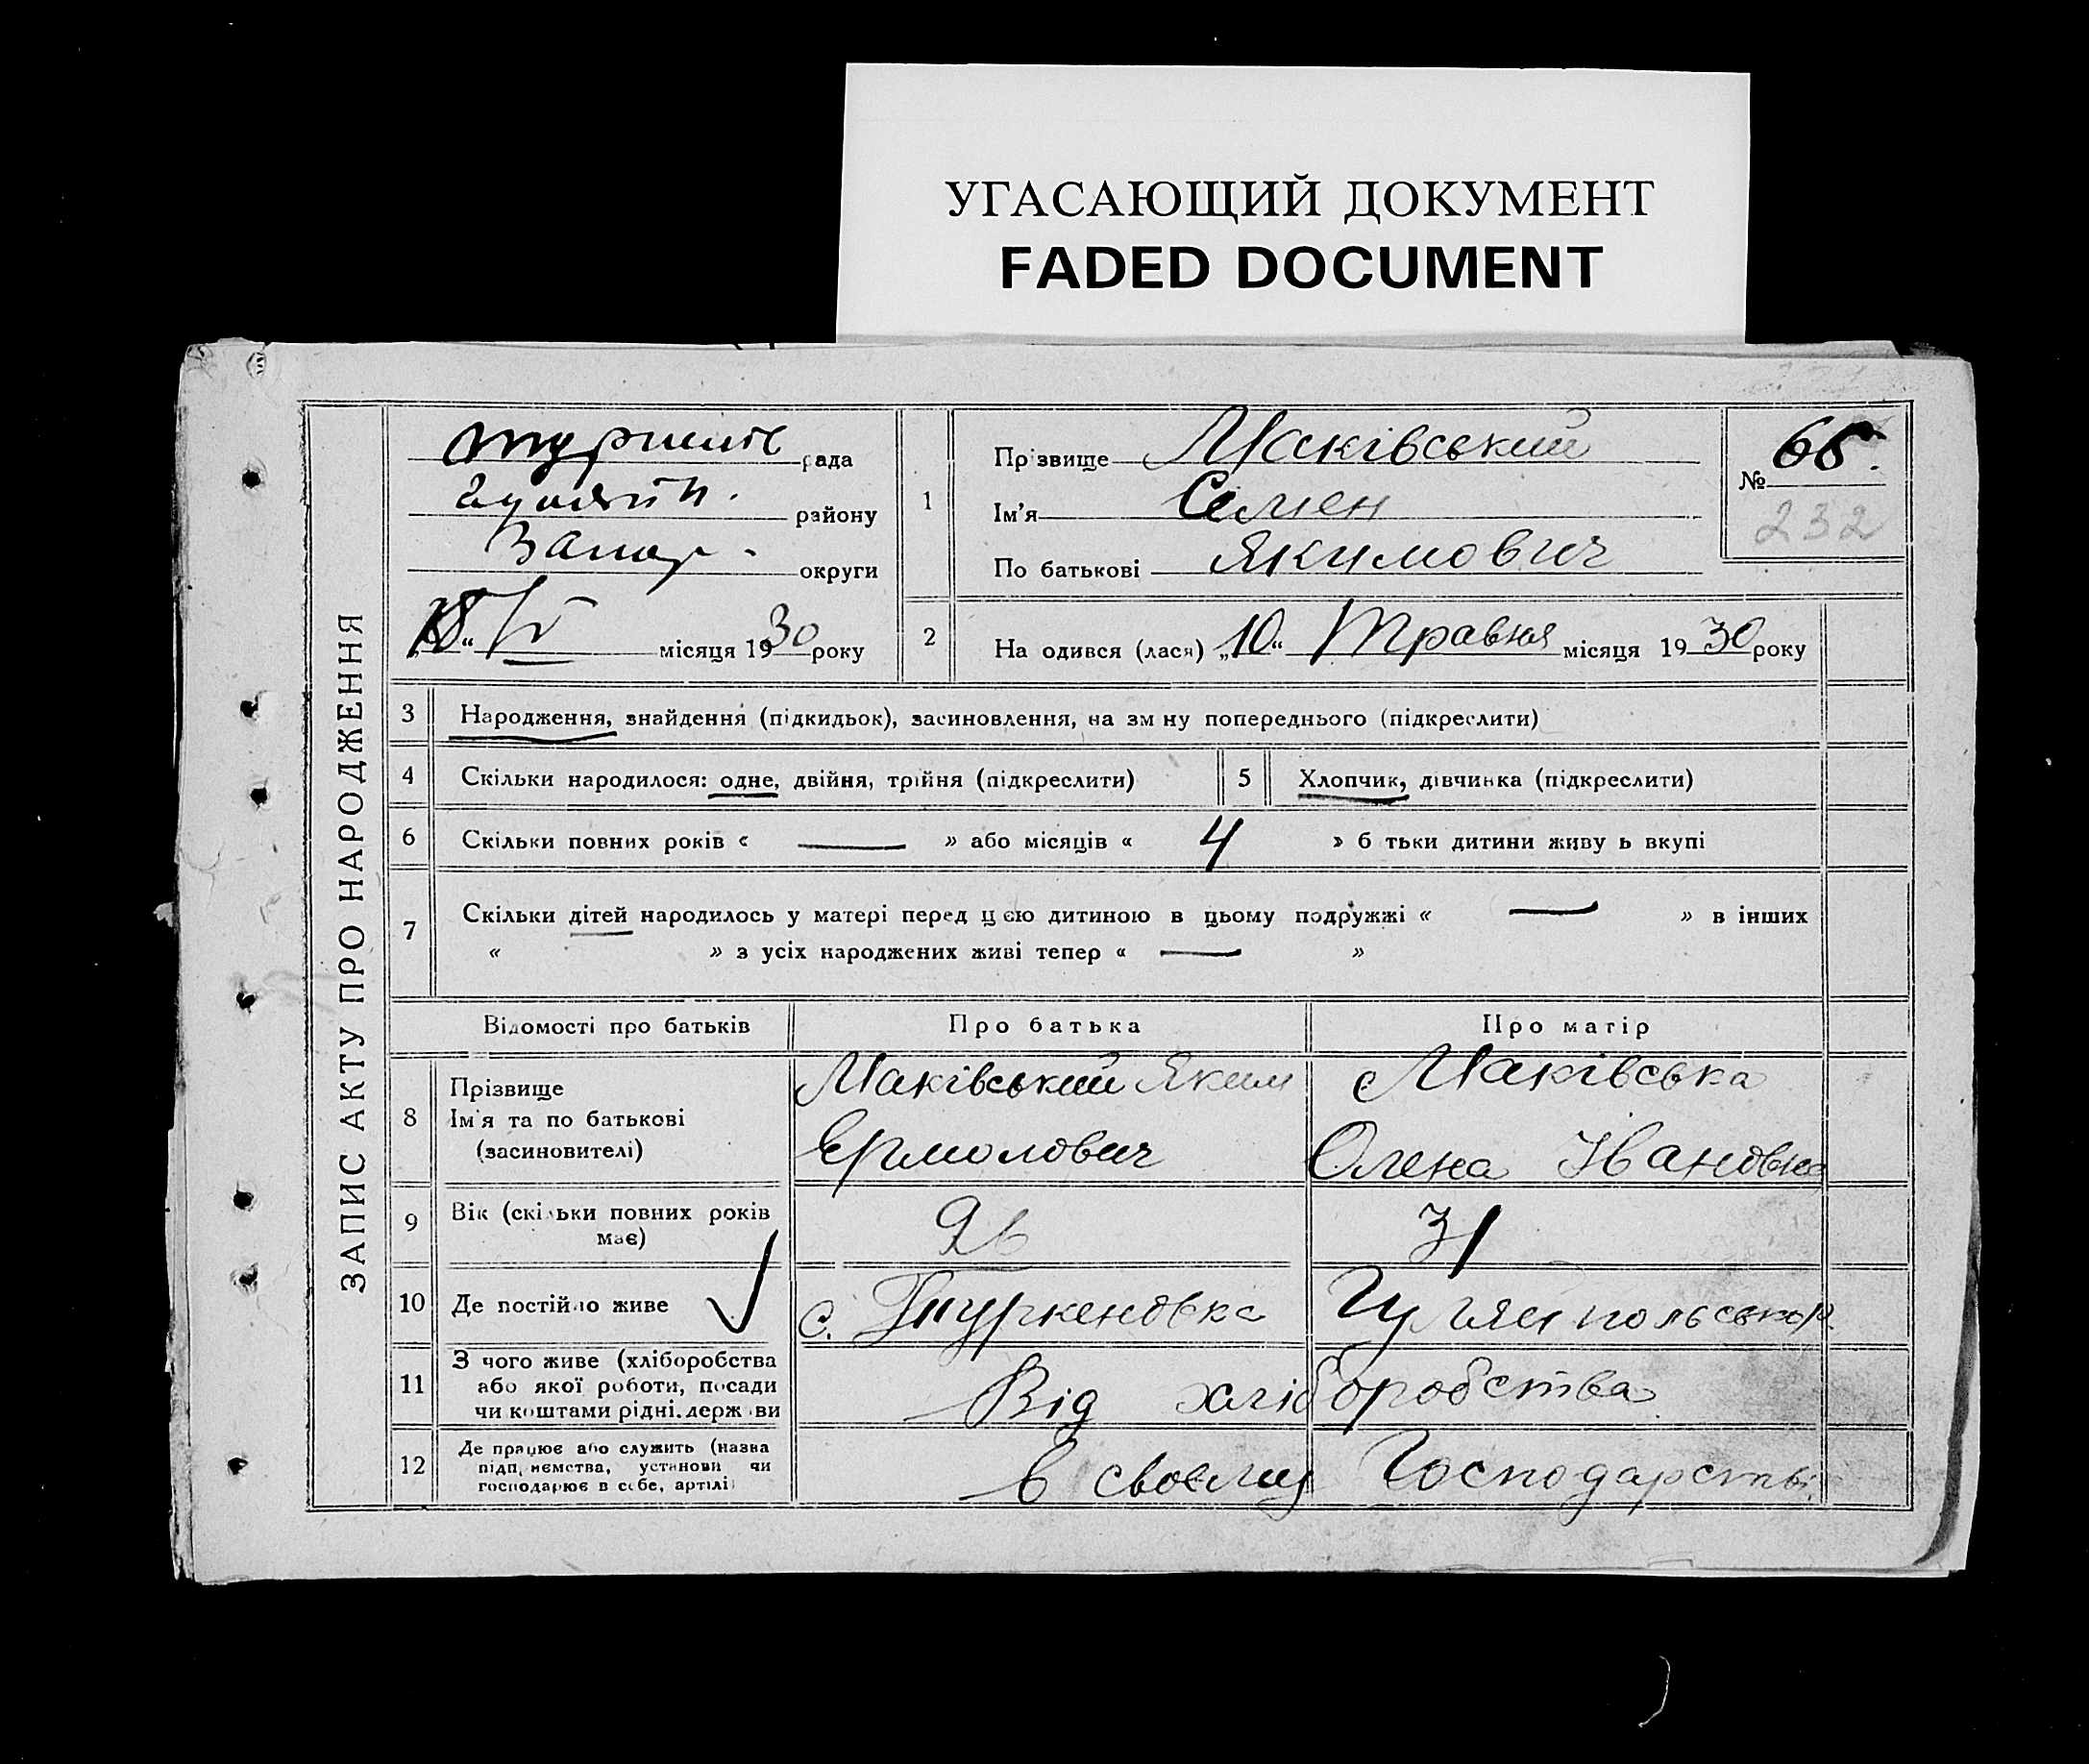 УГАСАЮЩИЙ ДОКУМЕНТ
FADED DOCUMENT
ЗАПИС АКТУ ПРО НАРОДЖЕННЯ
рада
району
Запор. округи
18 "/V місяця 1930 року
1
Прізвище Маківський
Ім'я Семен
По батькові Якимович
№ 65.
232
2
На одився (лася) „10“ Травня місяця 1930 року
3 Народження, знайдення (підкидьок), засиновлення, на зм ну попереднього (підкреслити)
4 Скільки народилося: одне, двійня, трійня (підкреслити)
5 Хлопчик, дівчинка (підкреслити)
6 Скільки повних років « — » або місяців « 4 » б тьки дитини живу ь вкупі
7 Скільки дітей народилось у матері перед цією дитиною в цьому подружжі « — » в інших
« » з усіх народжених живі тепер « — »
Відомості про батьків Про батька Про матір
8 Прізвище
Ім'я та по батькові
(засиновителі)
Маківський Яким
Ермолович
Маківська
Олена Івановна
9 Вік (скільки повних років
має)
26 31
10 Де постійно живе с. Туркеновка Гуляйпольськ р.
11 З чого живе (хліборобства
або якої роботи, посади
чи коштами рідні. держ ви
Від хліборобства
12 Де працює або служить (назва
підп, немства, установи чи
господарює в себе, артілі
в своему Господарстві